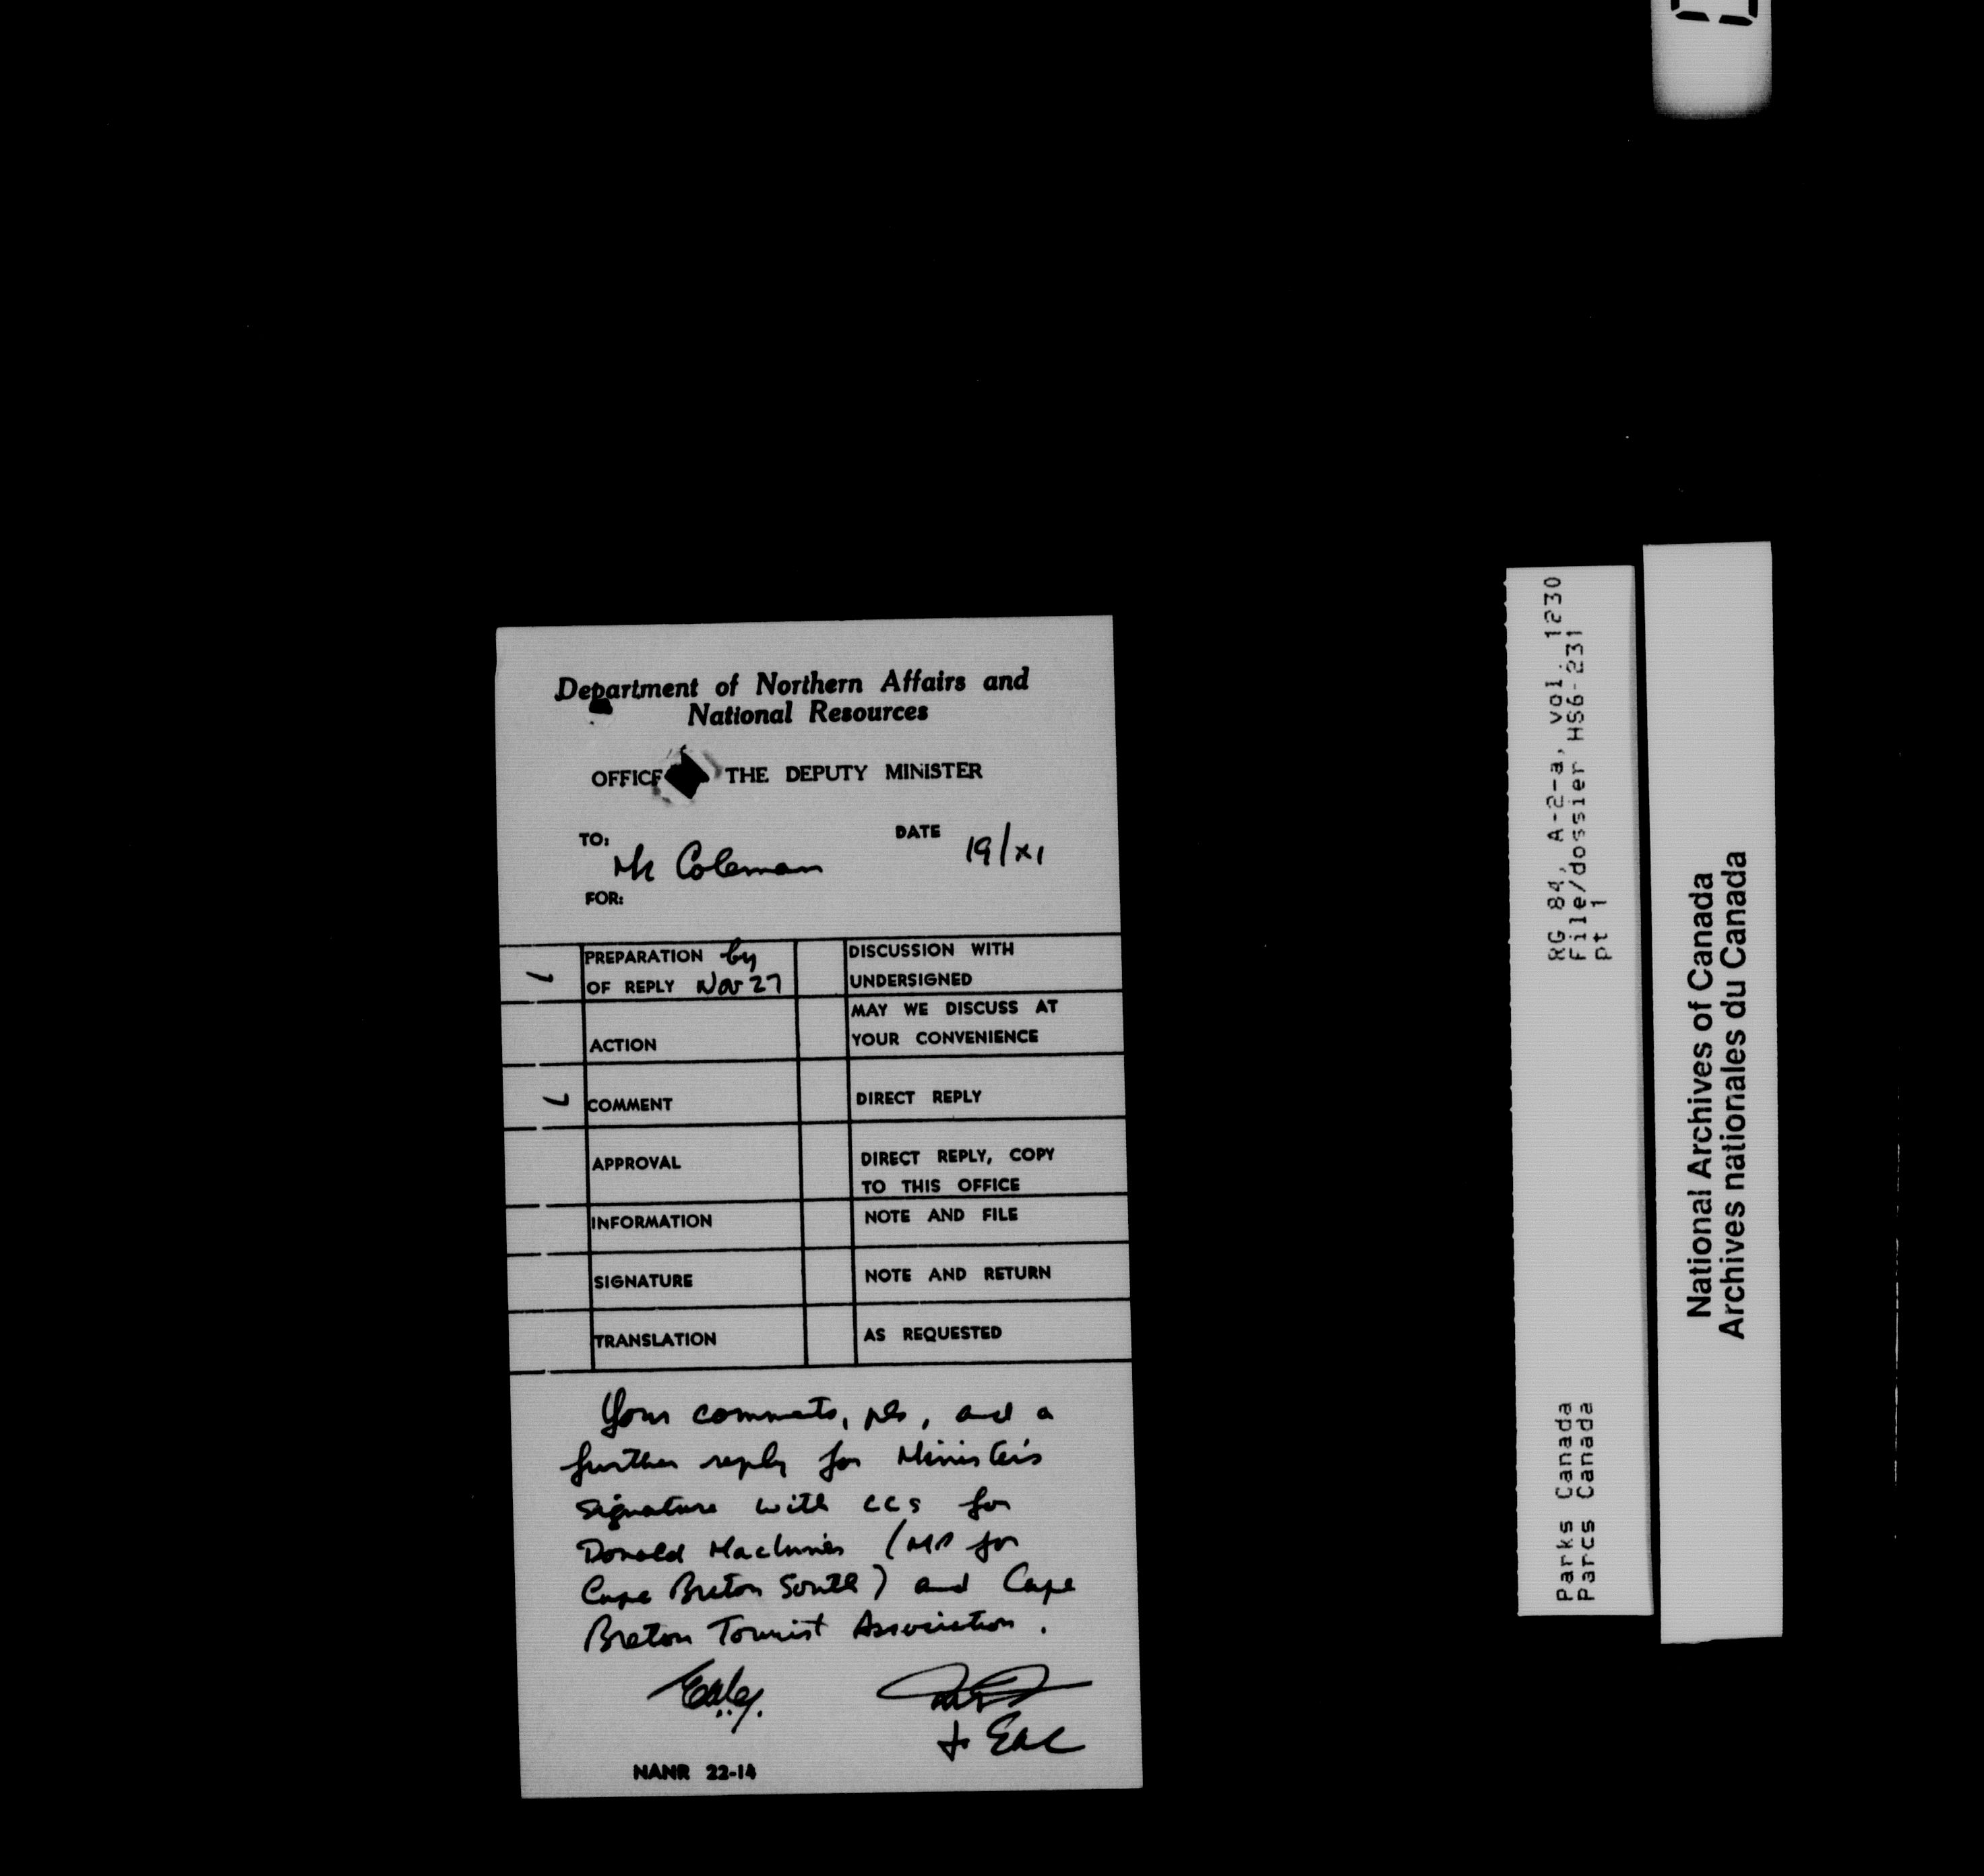 Department of Northern Affairs and
National Resources
OFFICE THE DEPUTY MINISTER
TO: Mr Coleman
DATE 19/XI
FOR:
PREPARATION by
OF REPLY Nov 27
DISCUSSION WITH
UNDERSIGNED
ACTION
MAY WE DISCUSS AT
YOUR CONVENIENCE
COMMENT
DIRECT REPLY
APPROVAL
DIRECT REPLY, COPY
TO THIS OFFICE
INFORMATION
NOTE AND FILE
SIGNATURE
NOTE AND RETURN
TRANSLATION
AS REQUESTED
Your comments, pls, and a
further reply for Minister's
signature with ccs for
Donald MacInnis (MP for
Cape Breton South) and Cape
Breton Tourist Association.
NANR 22-14
RG 84, A-2-a, vol. 1230
File/dossier HS6-231
pt 1
Parks Canada
Parcs Canada
National Archives of Canada
Archives nationales du Canada